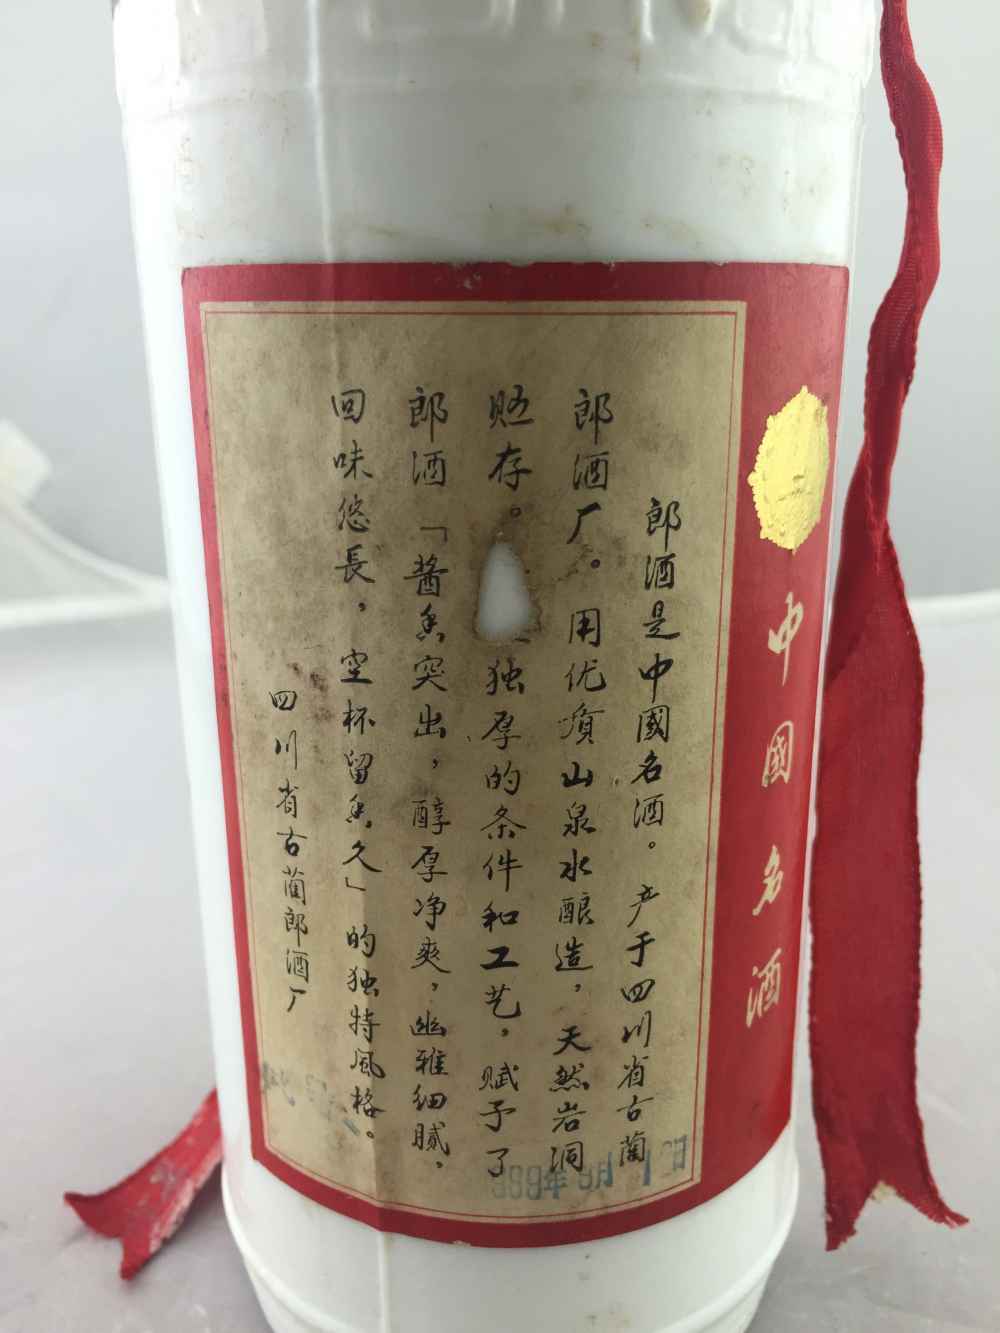 中國名酒
郎酒是中國名酒。产于四川省古蔺
郎酒厂。用优質山泉水酿造,天然岩洞
贮存。独厚的条件和工艺,赋予了
郎酒「酱香突出,醇厚净爽,幽雅细腻,
回味悠長,空杯留香久」的独特風格。
四川省古蔺郎酒厂